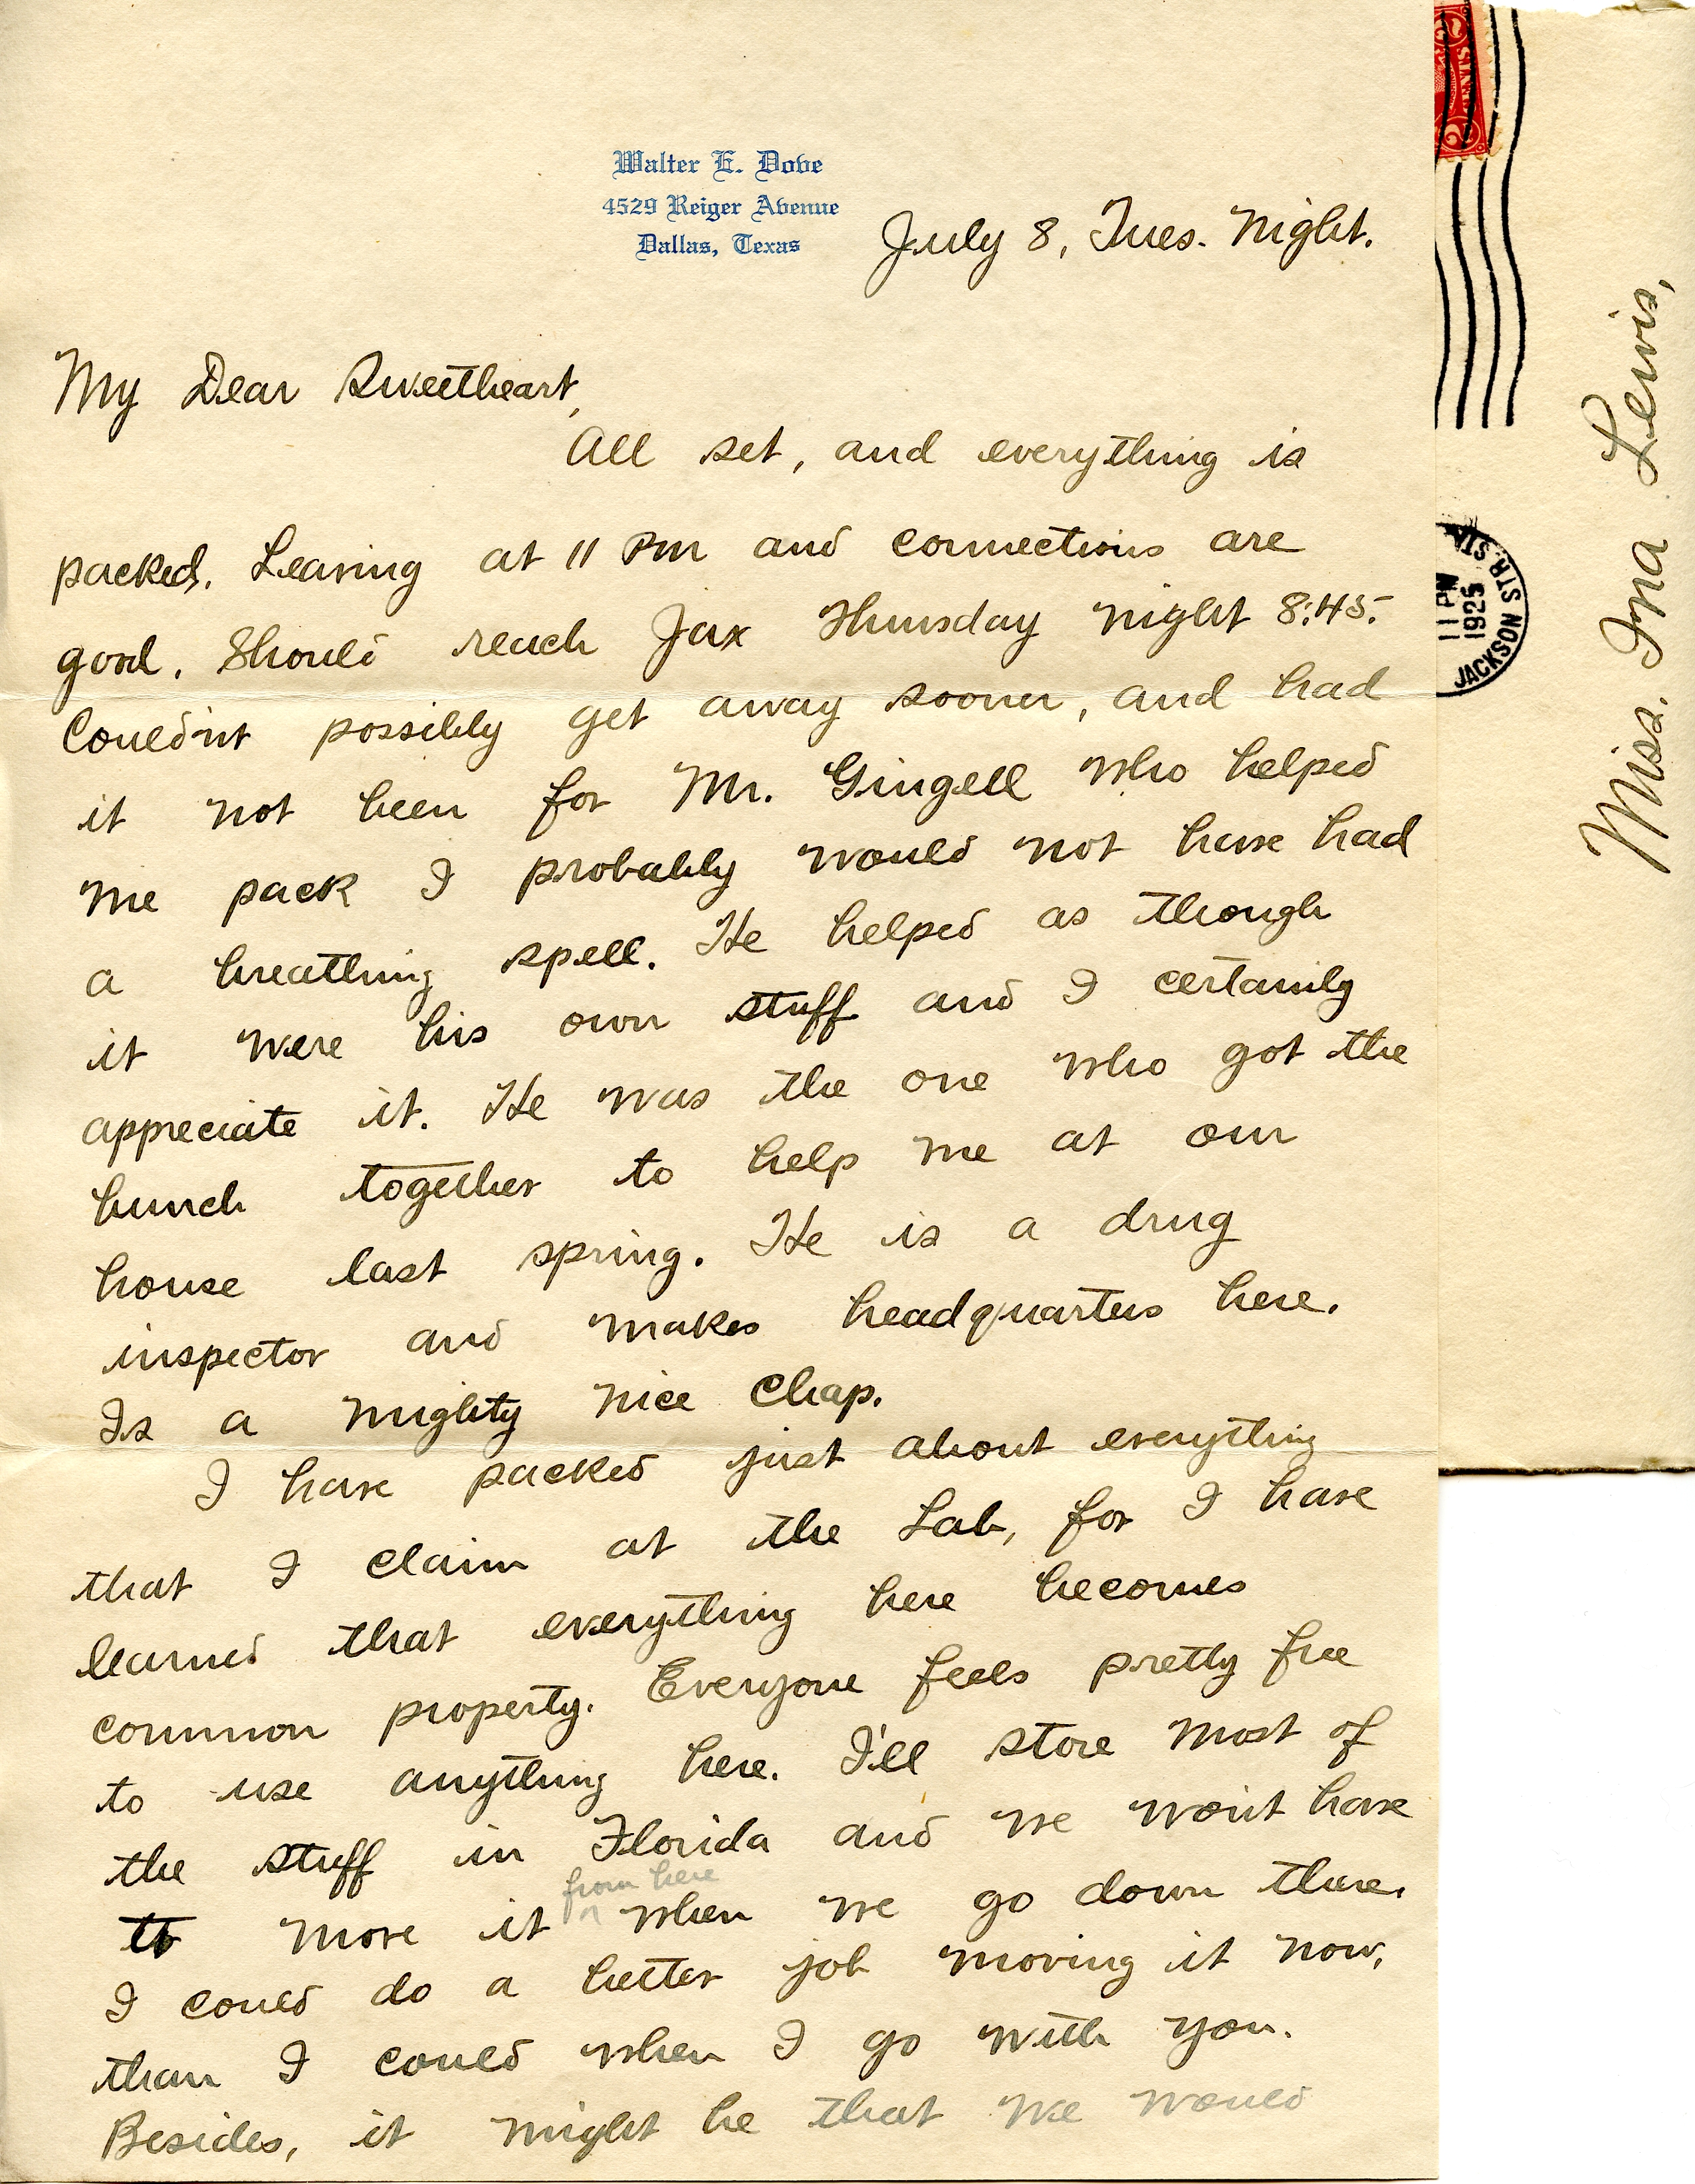 Walter E. Dove
4529 Reiger Avenue
Dallas, Texas
July 8, Tues. Night.
My Dear Sweetheart,
All set, and everything is
packed. Leaving at 11 PM and connections are
good. Should reach Jax Thursday night 8:45.
Couldn't possibly get away sooner, and had
it not been for Mr. Gingell who helped
me pack I probably would not have had
a breathing spell. He helped as though
it were his own stuff and I certainly
appreciate it. He was the one who got the
bunch together to help me at our
house last spring. He is a drug
inspector and makes headquarters here.
Is a mighty nice chap.
I have packed just about everything
that I claim at the Lab, for I have
learned that everything here becomes
common property. Everyone feels pretty free
to use anything here. I'll store most of
the stuff in Florida and we won't have
from here
to move it ^ when we go down there.
I could do a better job moving it now,
than I could when I go with you.
Besides, it might be that we would
2 CENTS 2
JACKSON STR. STA.
11 PM
1925
Miss. Ina Lewis,